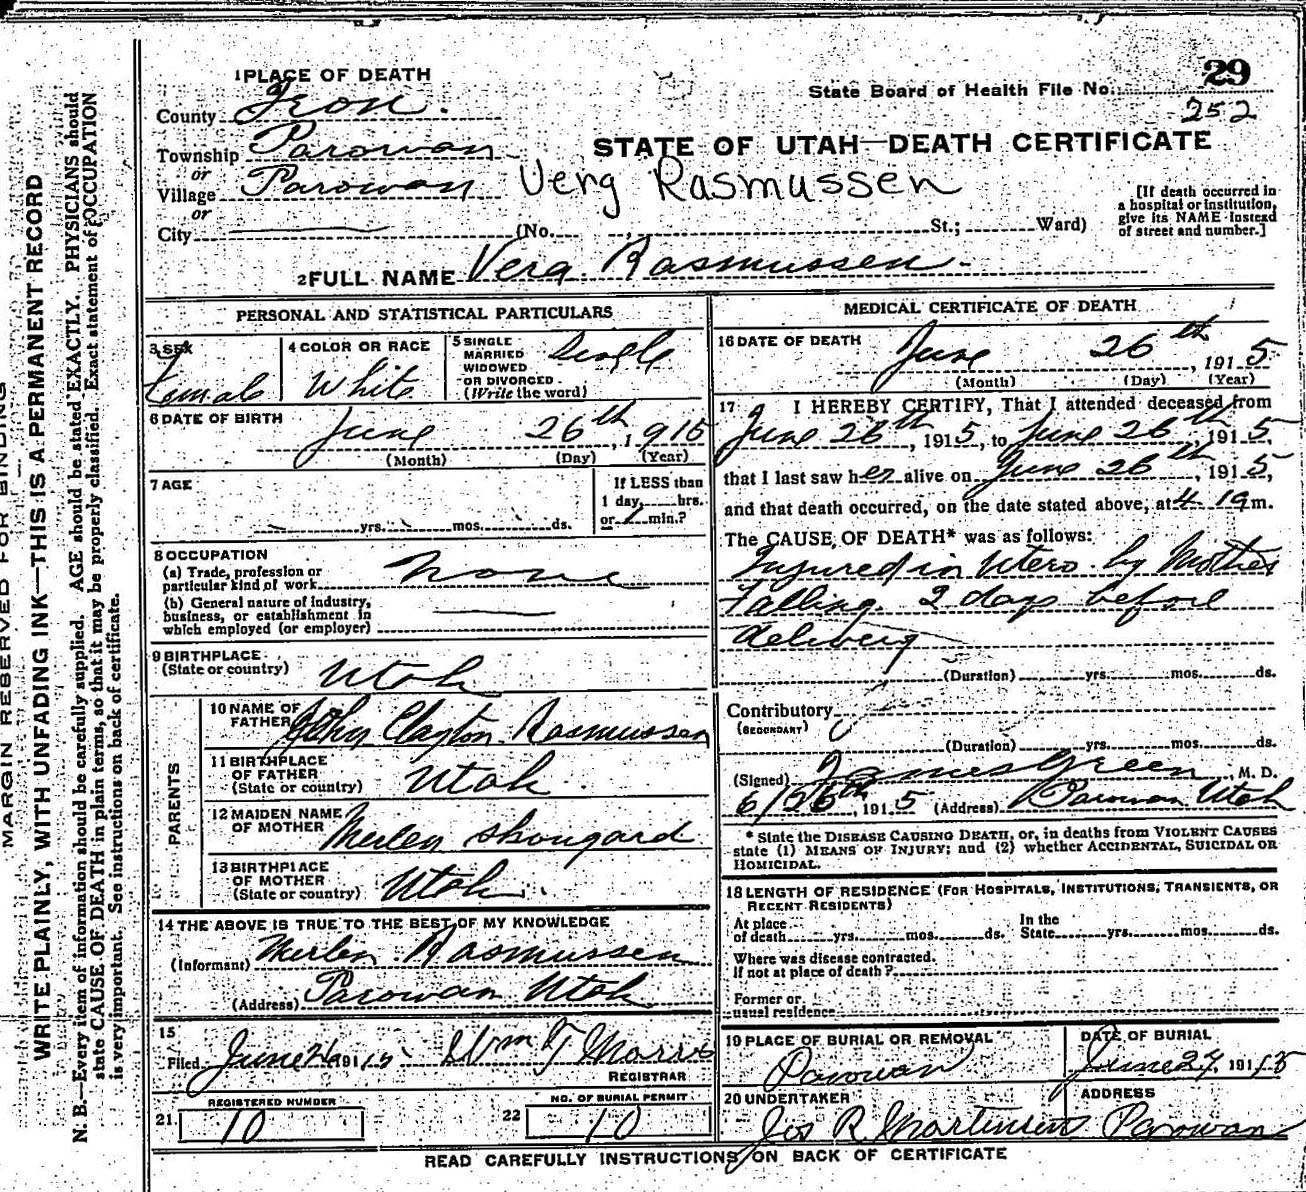 29
State Board of Health File No.
252
1 PLACE OF DEATH
County Iron.
Township Parowan
or
Village Parowan
or
City (No. , St.; Ward)
STATE OF UTAH—DEATH CERTIFICATE
Verg Rasmussen
[If death occurred in
a hospital or institution,
give its NAME instead
of street and number.]
2 FULL NAME Verg Rasmussen.
PERSONAL AND STATISTICAL PARTICULARS
3 SEX
Female
4 COLOR OR RACE
White
5 SINGLE
MARRIED
WIDOWED
OR DIVORCED
(Write the word)
Single
6 DATE OF BIRTH
June 26th, 1915
(Month) (Day) (Year)
7 AGE
yrs. mos. ds.
If LESS than
1 day, hrs.
or 1 min.?
8 OCCUPATION
(a) Trade, profession or
particular kind of work none
(b) General nature of industry,
business, or establishment in
which employed (or employer)
9 BIRTHPLACE
(State or country) Utah
PARENTS
10 NAME OF
FATHER John Clayton Rasmussen
11 BIRTHPLACE
OF FATHER
(State or country) Utah
12 MAIDEN NAME
OF MOTHER Merlen Skougard
13 BIRTHPLACE
OF MOTHER
(State or country) Utah.
14 THE ABOVE IS TRUE TO THE BEST OF MY KNOWLEDGE
(Informant) Merlen Rasmussen
(Address) Parowan Utah
15
Filed June 26 1915 Wm T Morris
REGISTRAR
21 REGISTERED NUMBER
10
22 NO. OF BURIAL PERMIT
10
MEDICAL CERTIFICATE OF DEATH
16 DATE OF DEATH
June 26th, 1915
(Month) (Day) (Year)
17 I HEREBY CERTIFY, That I attended deceased from
June 26th, 1915, to June 26th, 1915,
that I last saw her alive on June 26th, 1915,
and that death occurred, on the date stated above, at 4 19 m.
The CAUSE OF DEATH* was as follows:
Injured in Utero by Mother
falling 2 days before
delivery
(Duration) yrs. mos. ds.
Contributory
(SECONDARY)
(Duration) yrs. mos. ds.
(Signed) James Green, M. D.
6/26th, 1915 (Address) Parowan Utah
* State the DISEASE CAUSING DEATH, or, in deaths from VIOLENT CAUSES
state (1) MEANS OF INJURY; and (2) whether ACCIDENTAL, SUICIDAL OR
HOMICIDAL.
18 LENGTH OF RESIDENCE (FOR HOSPITALS, INSTITUTIONS, TRANSIENTS, OR
RECENT RESIDENTS)
At place
of death yrs. mos. ds.
In the
State yrs. mos. ds.
Where was disease contracted.
if not at place of death?
Former or
usual residence
19 PLACE OF BURIAL OR REMOVAL
Parowan
DATE OF BURIAL
June 27, 1915
20 UNDERTAKER
Jos R. Mortensen
ADDRESS
Parowan
READ CAREFULLY INSTRUCTIONS ON BACK OF CERTIFICATE
MARGIN RESERVED FOR BINDING
WRITE PLAINLY, WITH UNFADING INK—THIS IS A PERMANENT RECORD
N. B.—Every item of information should be carefully supplied. AGE should be stated EXACTLY. PHYSICIANS should
state CAUSE OF DEATH in plain terms, so that it may be properly classified. Exact statement of OCCUPATION
is very important. See instructions on back of certificate.